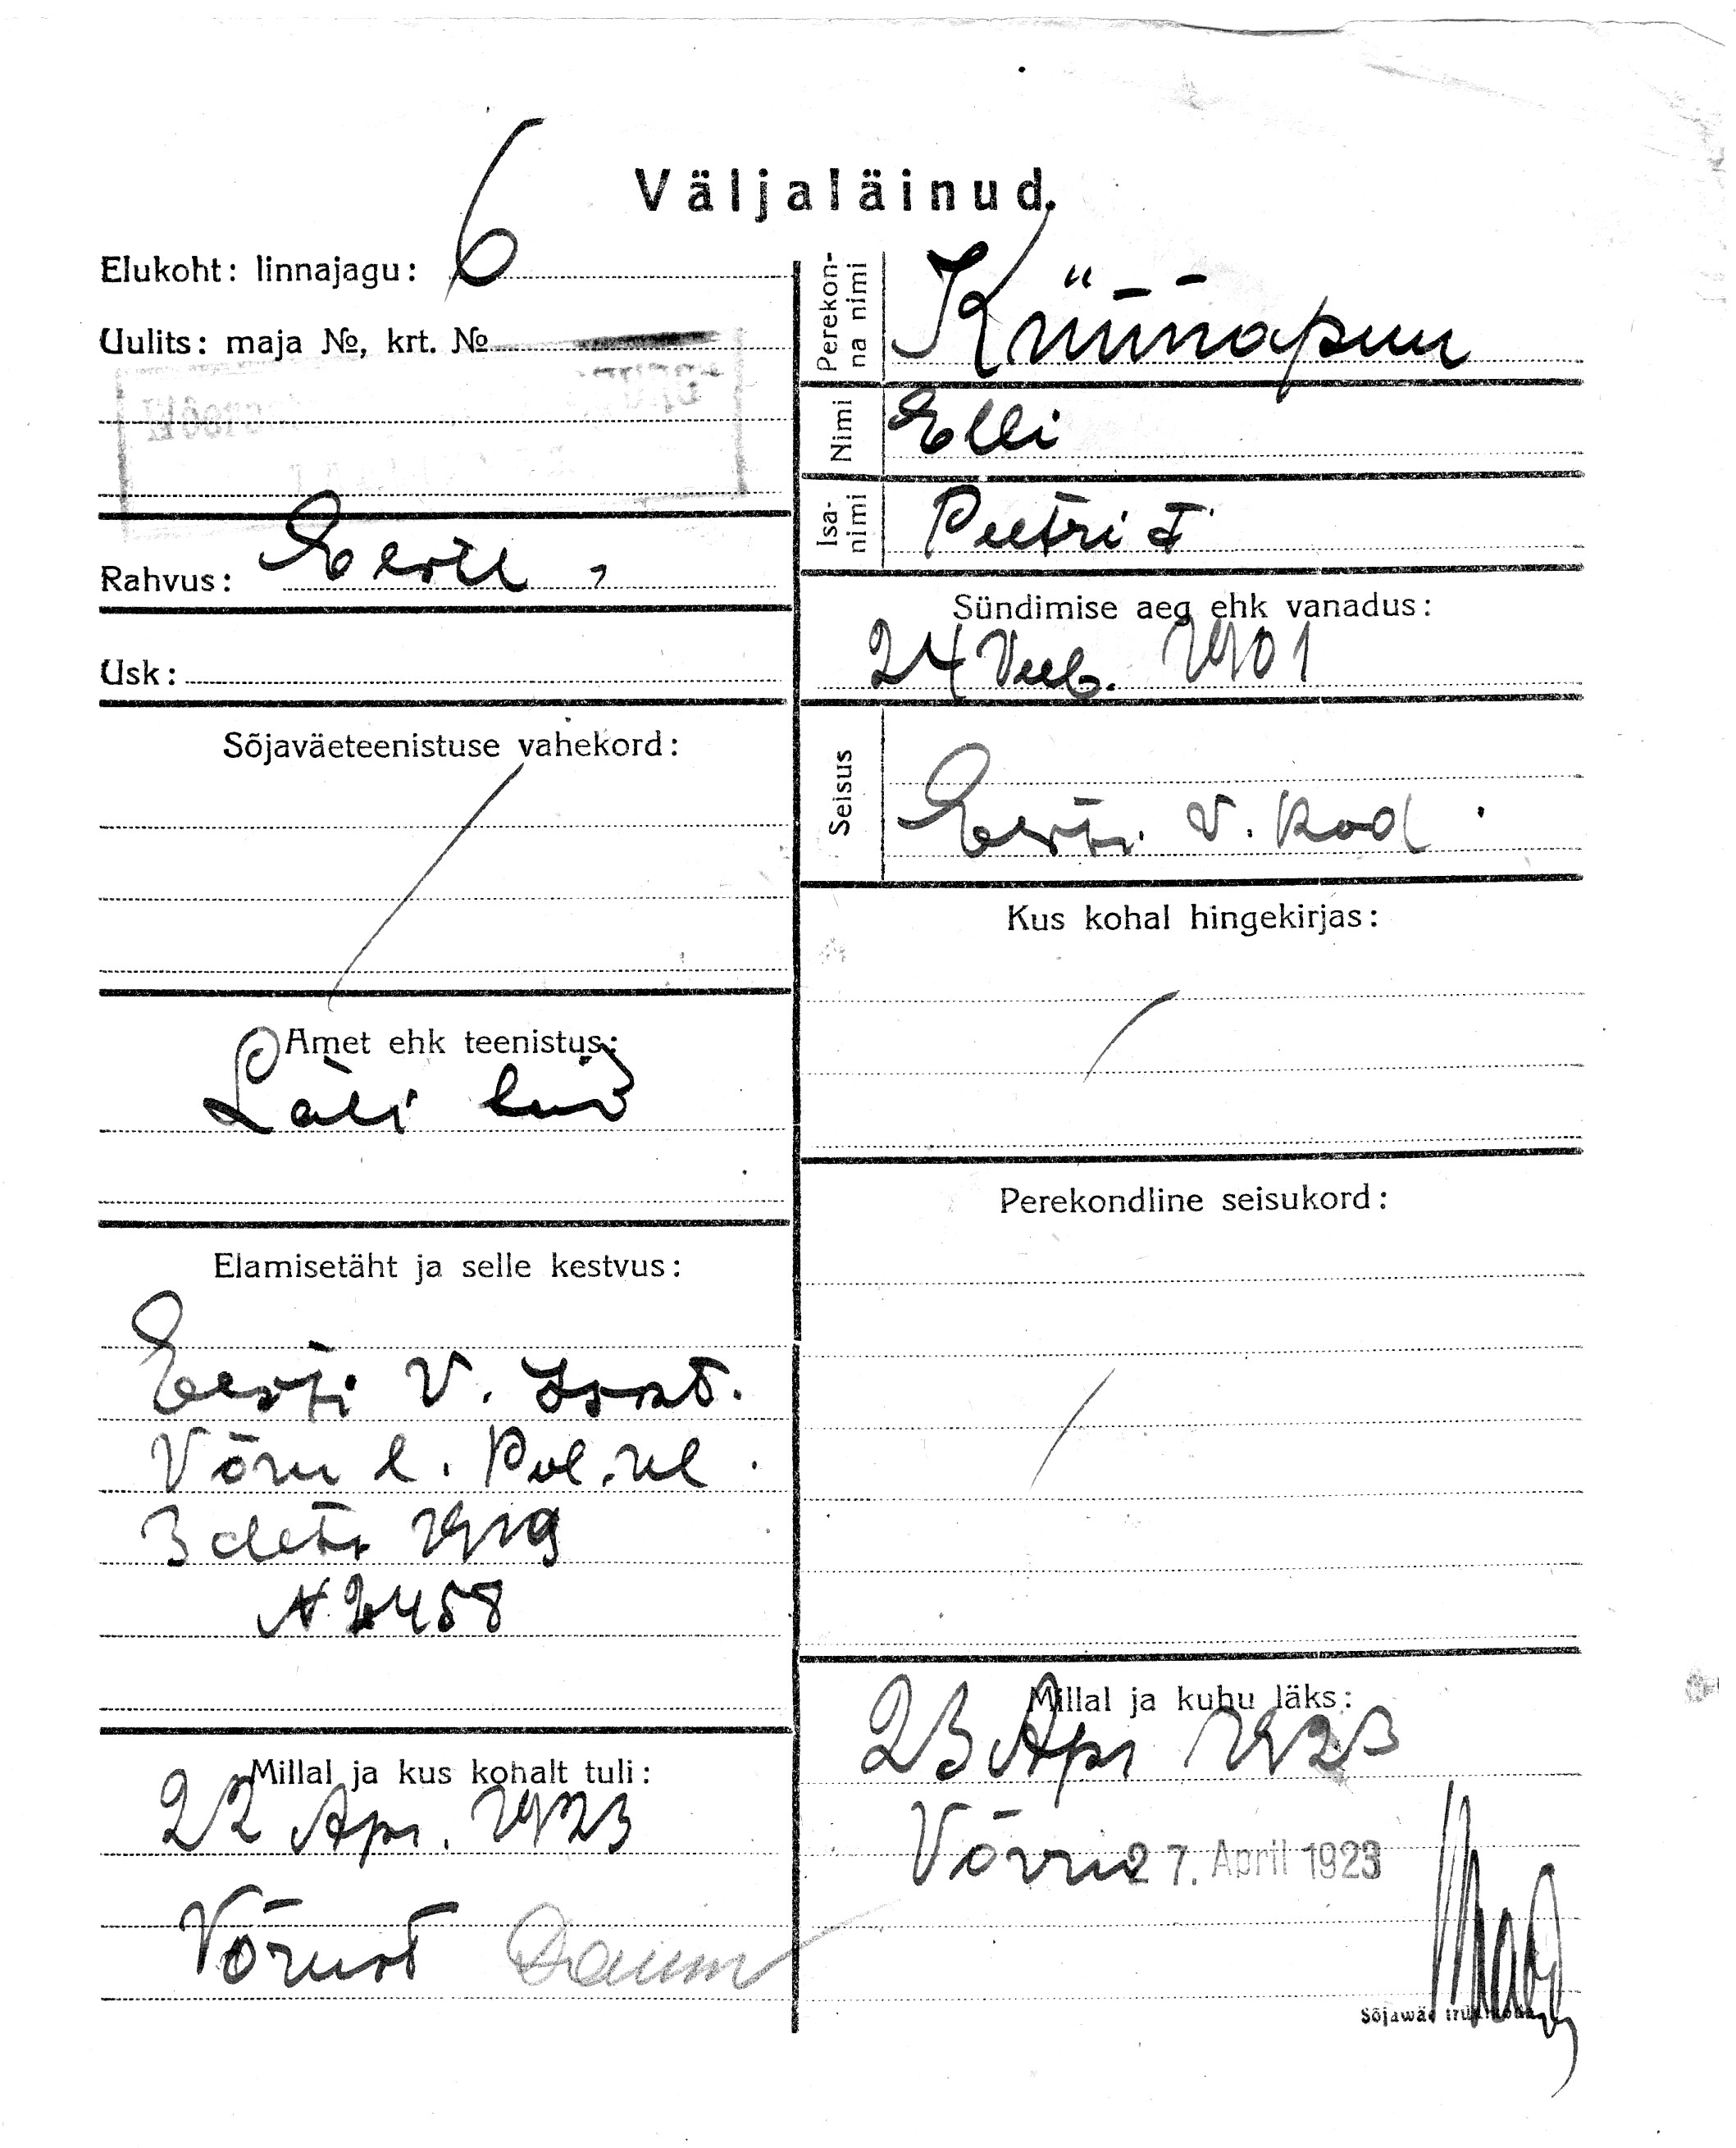 Väljaläinud.
Elukoht: linnajagu: 6
Uulits: maja №, krt. №
Rahvus: Eesti
Usk:
Sõjaväeteenistuse vahekord:
Amet ehk teenistus:
Elamisetäht ja selle kestvus:
Eesti V.
Võru l. Pol. ül.
3 dets 1919
N 2458
Millal ja kus kohalt tuli:
22 Apr. 1923
Võrust
Perekonna nimi
Künnapuu
Nimi
Elli
Isanimi
Peetri t
Sündimise aeg ehk vanadus:
24 Veeb. 1901
Seisus
Eesti V. kod.
Kus kohal hingekirjas:
Perekondline seisukord:
Millal ja kuhu läks:
23 Apr 1923
Võrru 27. April 1923